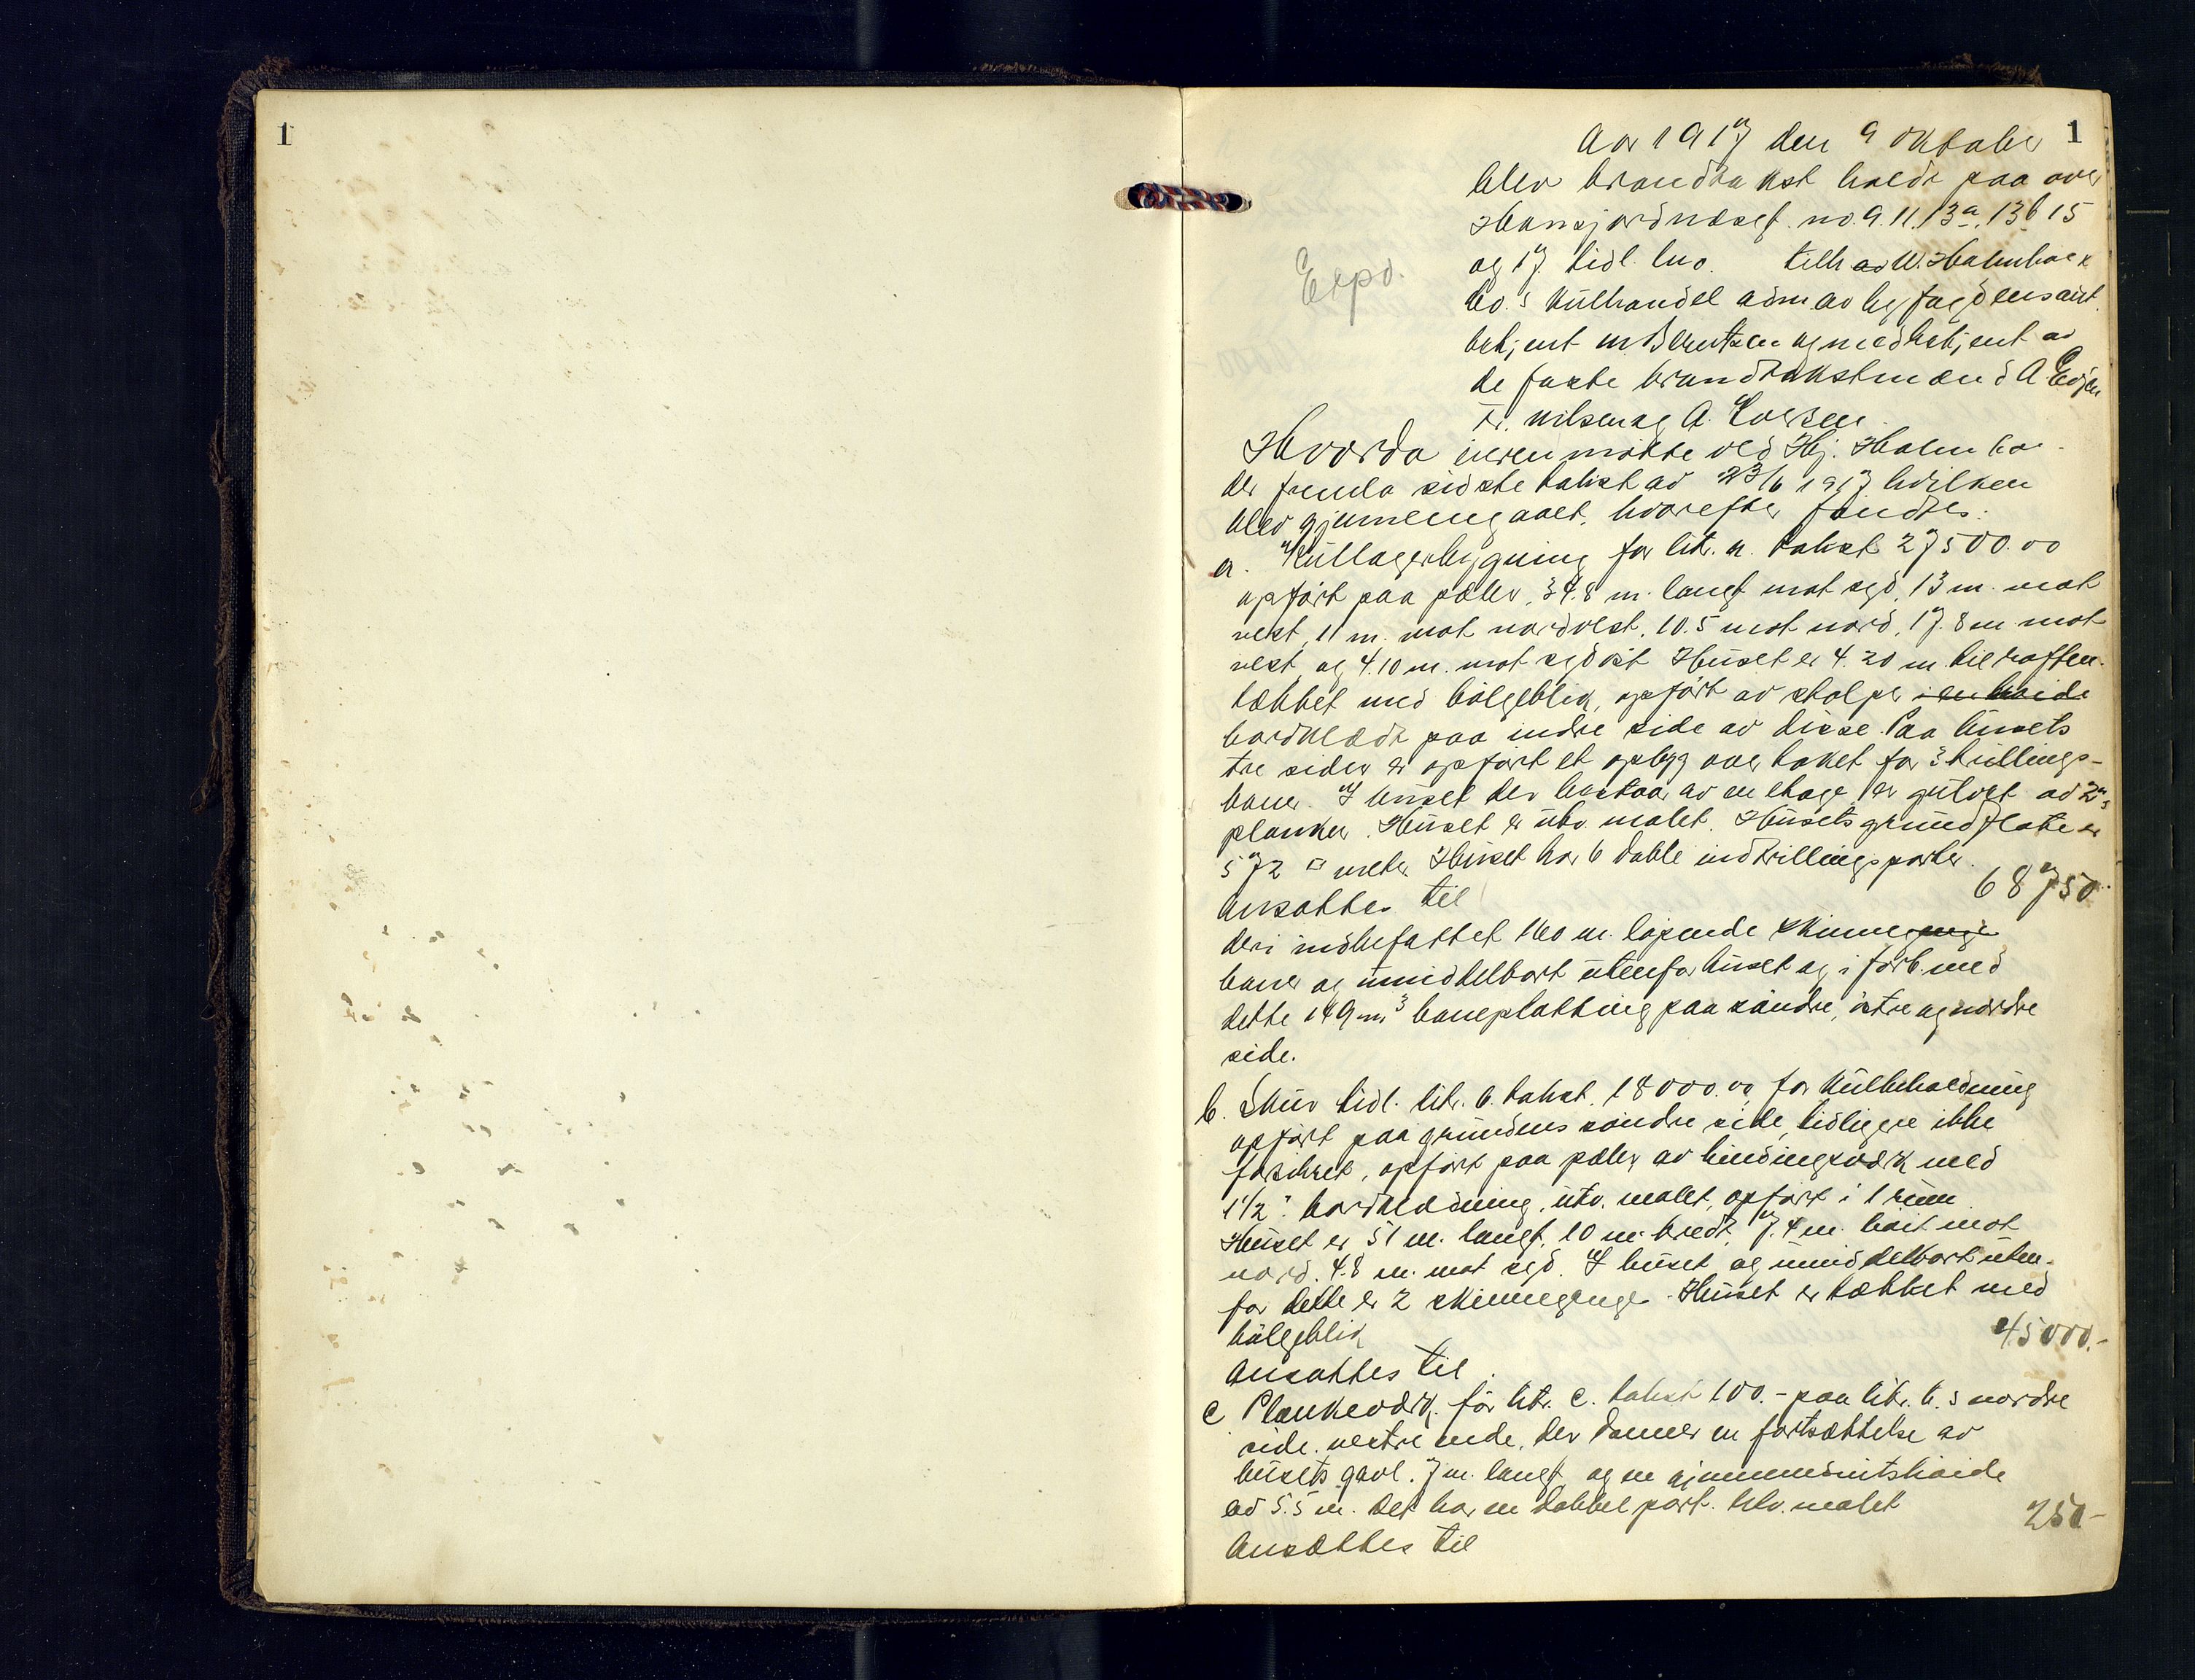 1
1
Aar 1917 den 9 oktober
blev brandtakst holdt paa over
Hansjordnæsgt. no. 9. 11. 13a. 13b 15
og 17. tidl. lno. tilh av W. Holmboe &
Co.s Kulhandel adm. av byfogdens aut.
betjent m. Berntzen og medbetjent av
de faste brandtakstmænd A. Evjen
Fr. Nilsen og A. Larsen.
Expd.
Hvorda eieren møtte ved Hj. Holmboe
der fremla sidste takst av 23/6 1917 hvilken
blev gjennemgaaet, hvorefter fandtes:
a. Kullagerbygning før litr. a. takst 27500.00
opført paa pæler, 34.8 m. langt mot syd, 13 m. mot
vest, 11 m. mot nordvest, 10.5 mot nord, 17.8 m mot
vest og 4.10 m. mot sydøst Huset er 4.20 m. til raften.
tækket med bølgeblik, opført av stolper i en høide
bordklædt paa indre side av disse. Paa husets
tre sider er opført et opbyg over taket for trillings-
baner. I huset der bestaar av en etage er gulvet av 2"s
planker. Huset er utv. malet. Husets grundflate er
572 □ meter. Huset har 6 doble indtrillingsporter.
Ansættes til 68750.-
deri indbefattet 160 m. løpende skinnegange
baner og umiddelbart utenfor huset og i forb. med
dette 149 m³ baneplatting paa søndre, østre og nordre
side.
b. Skur tidl. litr. b. takst. 18000.00 for kulbeholdning
opført paa grundens søndre side, tidligere ikke
forsikret, opført paa pæler av bindingsværk med
1 1/2" bordklædning, utv. malet, opført i 1 rum
Huset er 51 m. langt, 10 m. bredt, 7.4 m. høit mot
nord, 4.8 m. mot syd. I huset og umiddelbart uten-
for dette er 2 skinnegange. Huset er tækket med
bølgeblik
Ansættes til 45000.-
c Plankeværk før litr. c. takst 100.- paa litr. b.s nordre
side, vestre ende, der danner en fortsættelse av
husets gavl. 7 m. langt og en gjennemsnitshøide
av 5.5 m. Det har en dobbel port. Utv. malet
Ansættes til 250-